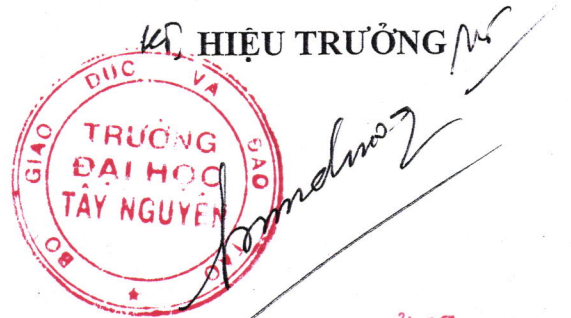 KT, HIỆU TRƯỞNG
BỘ GIÁO DỤC VÀ ĐÀO TẠO
TRƯỜNG
ĐẠI HỌC
TÂY NGUYÊN